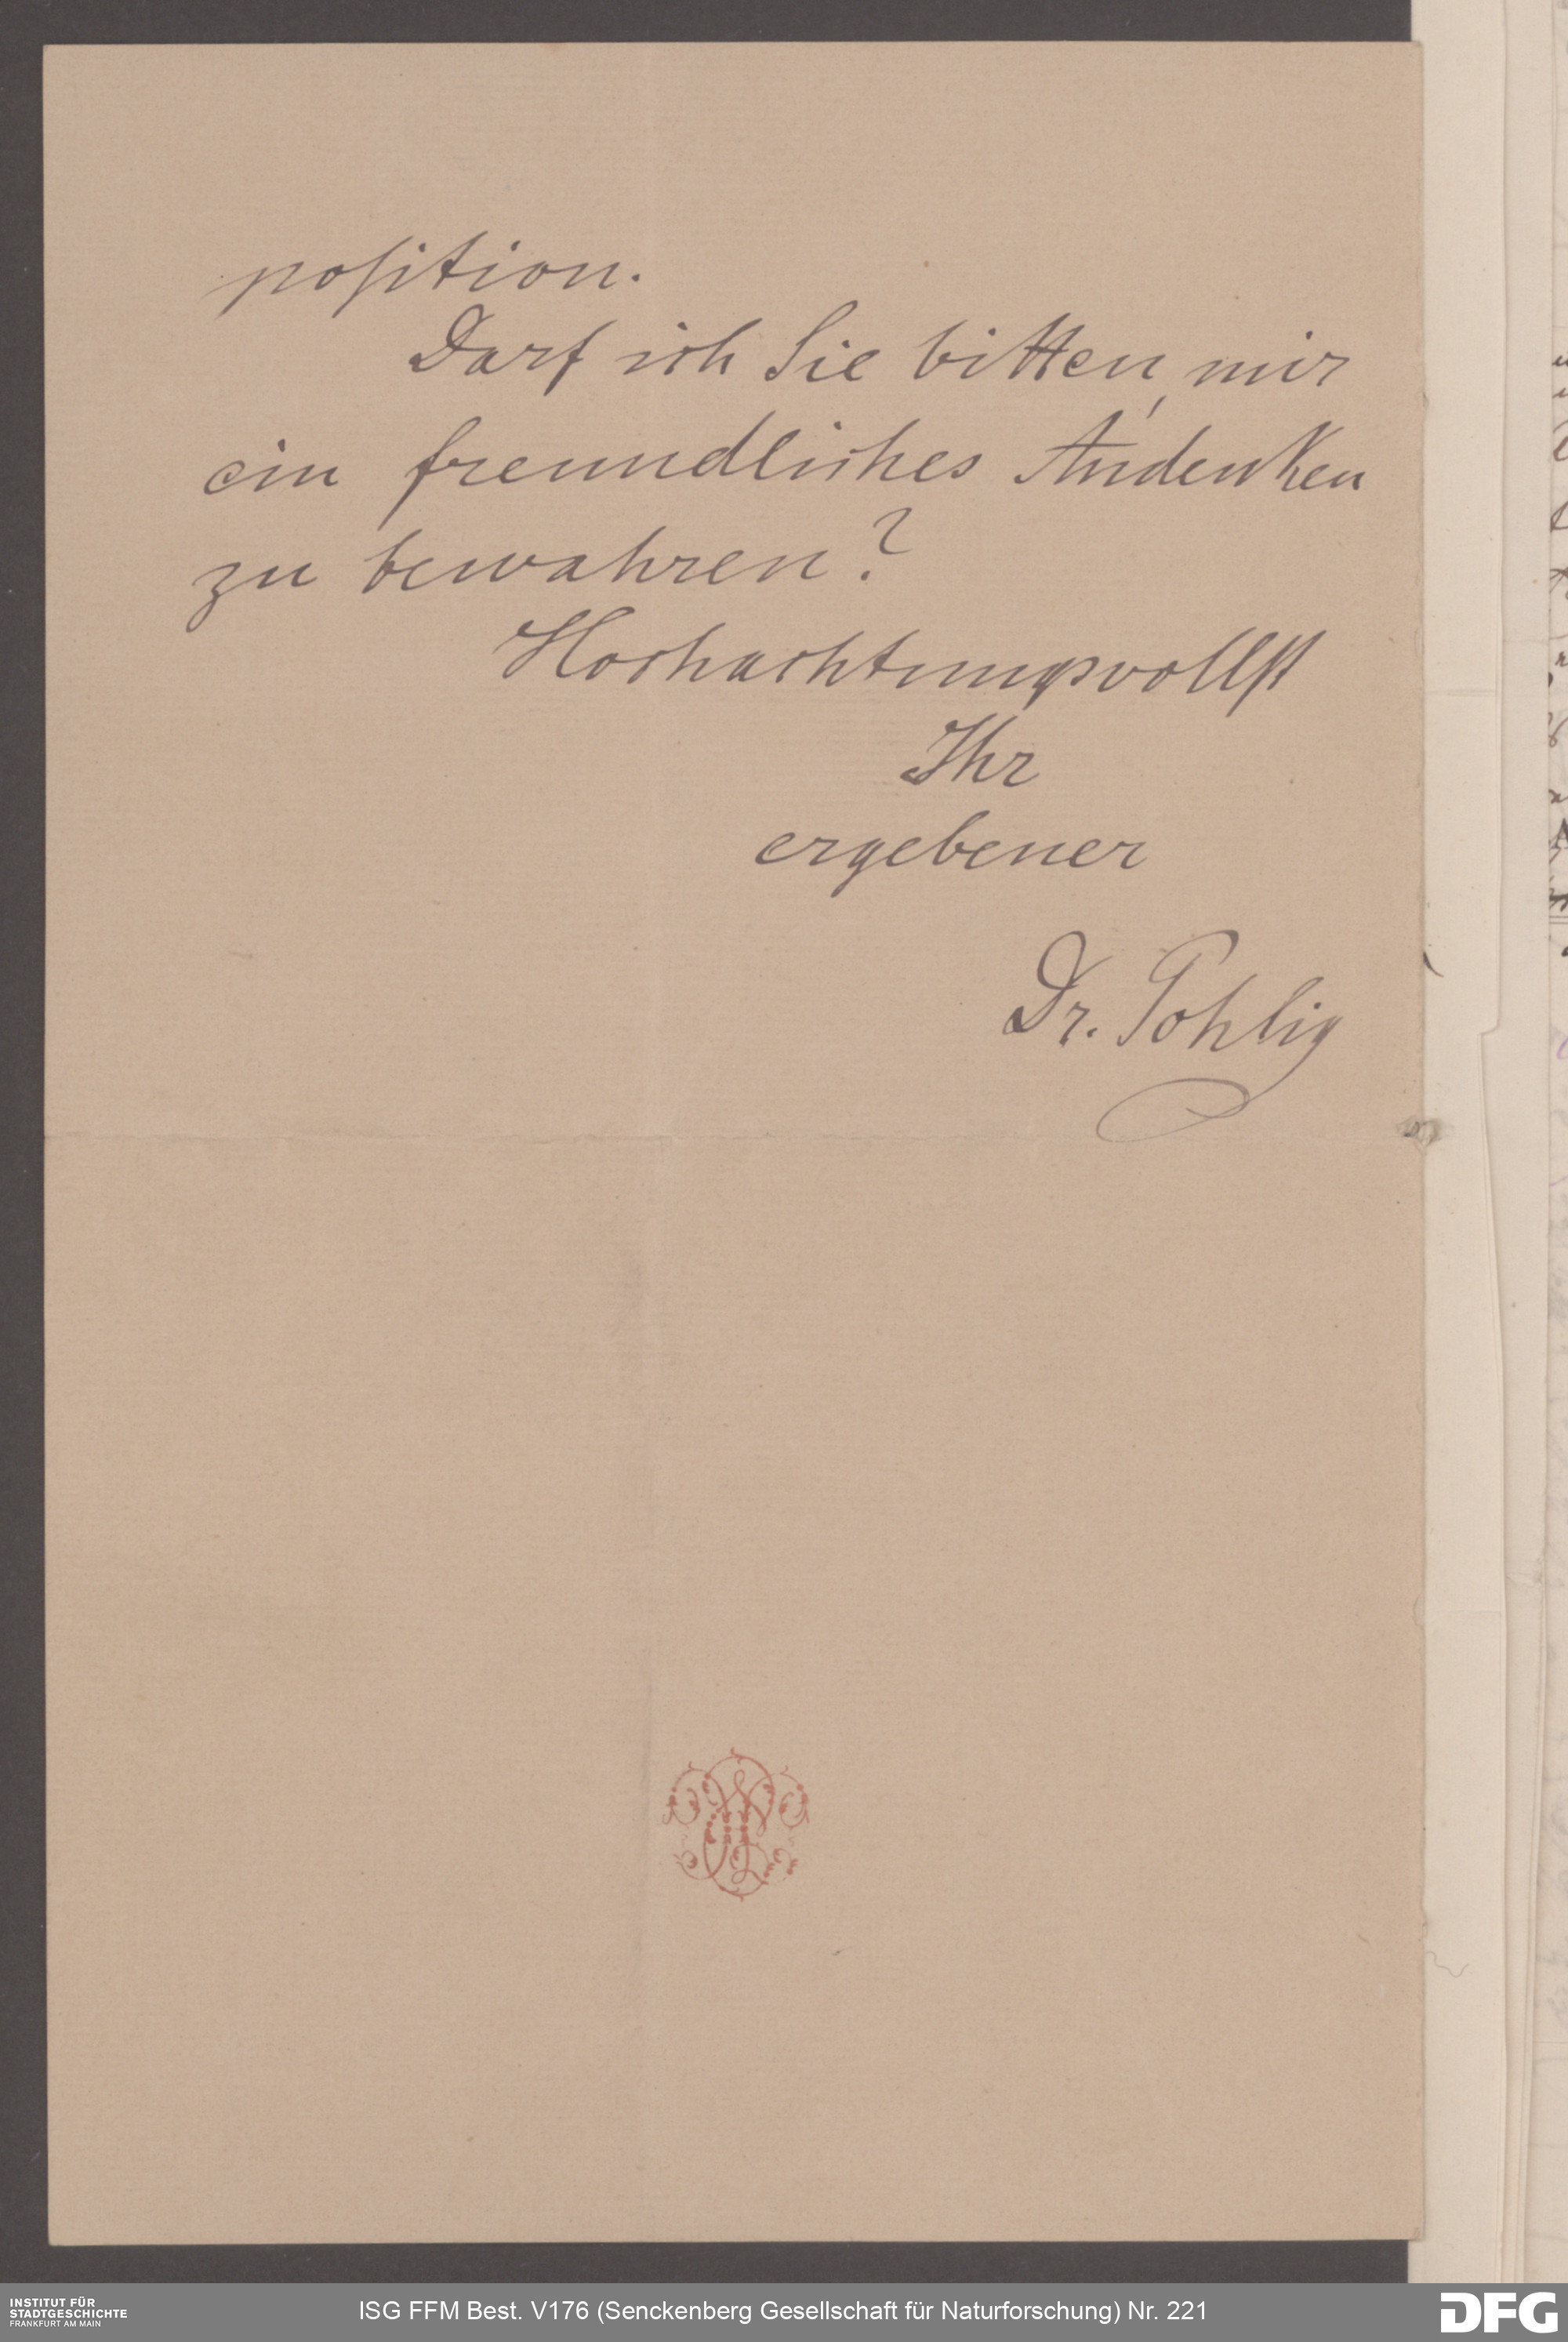 position.
Darf ich Sie bitten, mir
ein freundliches Andenken
zu bewahren?
Hochachtungsvollst
Ihr
ergebener
Dr. Pohlig
INSTITUT FÜR
STADTGESCHICHTE
FRANKFURT AM MAIN
ISG FFM Best. V176 (Senckenberg Gesellschaft für Naturforschung) Nr. 221
DFG